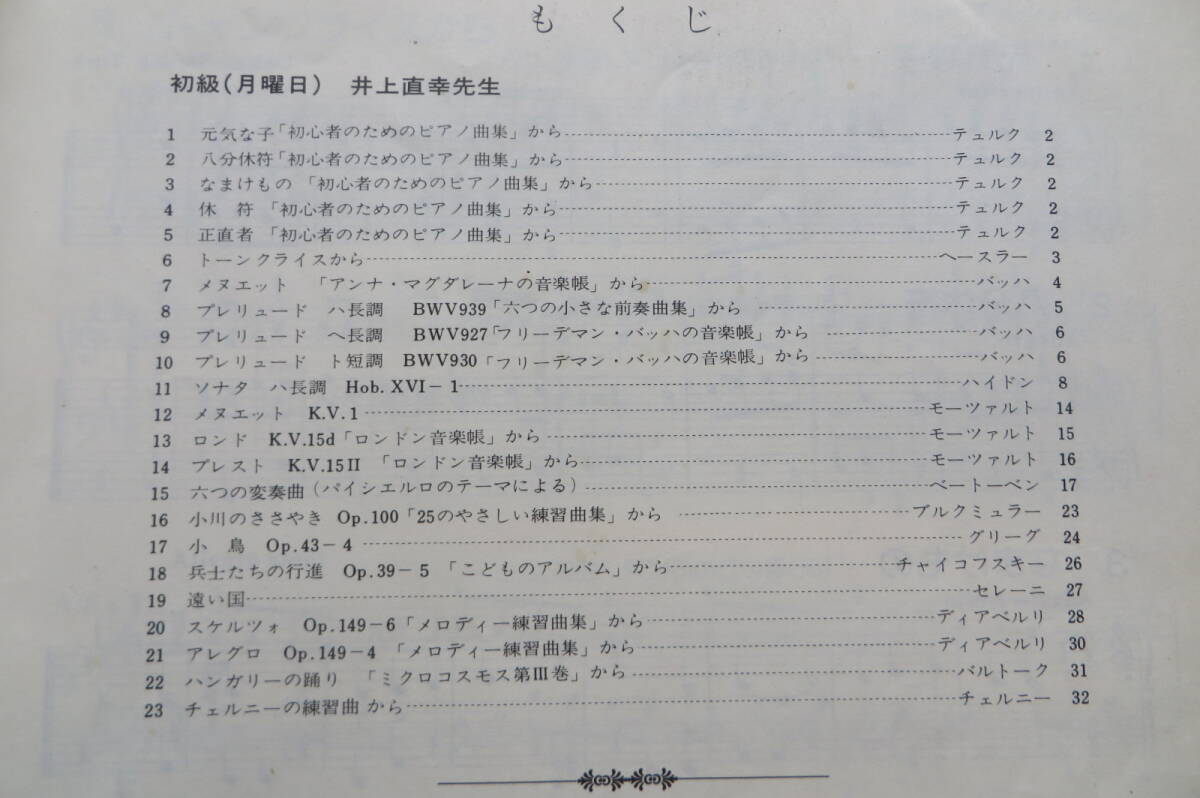 もくじ
初級(月曜日) 井上直幸先生
1 元気な子「初心者のためのピアノ曲集」から テュルク 2
2 八分休符「初心者のためのピアノ曲集」から テュルク 2
3 なまけもの 「初心者のためのピアノ曲集」から テュルク 2
4 休 符 「初心者のためのピアノ曲集」から テュルク 2
5 正直者 「初心者のためのピアノ曲集」から テュルク 2
6 トーンクライスから ヘースラー 3
7 メヌエット 「アンナ・マグダレーナの音楽帳」から バッハ 4
8 プレリュード ハ長調 BWV939「六つの小さな前奏曲集」から バッハ 5
9 プレリュード ヘ長調 BWV927「フリーデマン・バッハの音楽帳」から バッハ 6
10 プレリュード ト短調 BWV930「フリーデマン・バッハの音楽帳」から バッハ 6
11 ソナタ ハ長調 Hob. XVI-1 ハイドン 8
12 メヌエット K.V.1 モーツァルト 14
13 ロンド K.V.15d「ロンドン音楽帳」から モーツァルト 15
14 プレスト K.V.15II 「ロンドン音楽帳」から モーツァルト 16
15 六つの変奏曲(パイシエルロのテーマによる) ベートーベン 17
16 小川のささやき Op.100「25のやさしい練習曲集」から ブルクミュラー 23
17 小 鳥 Op.43-4 グリーグ 24
18 兵士たちの行進 Op.39-5 「こどものアルバム」から チャイコフスキー 26
19 遠い国 セレーニ 27
20 スケルツォ Op.149-6「メロディー練習曲集」から ディアベルリ 28
21 アレグロ Op.149-4 「メロディー練習曲集」から ディアベルリ 30
22 ハンガリーの踊り 「ミクロコスモス第III巻」から バルトーク 31
23 チェルニーの練習曲から チェルニー 32